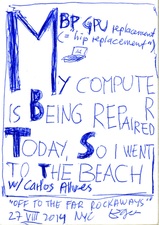 MBP GPU replacement
(= hip replacement")
MY COMPUTER
IS BEING REPAIRED
TODAY, SO I WENT
TO THE BEACH
w/ Carlos Allues
"OFF TO THE FAR ROCKAWAYS"
27 VIII 2014 NYC